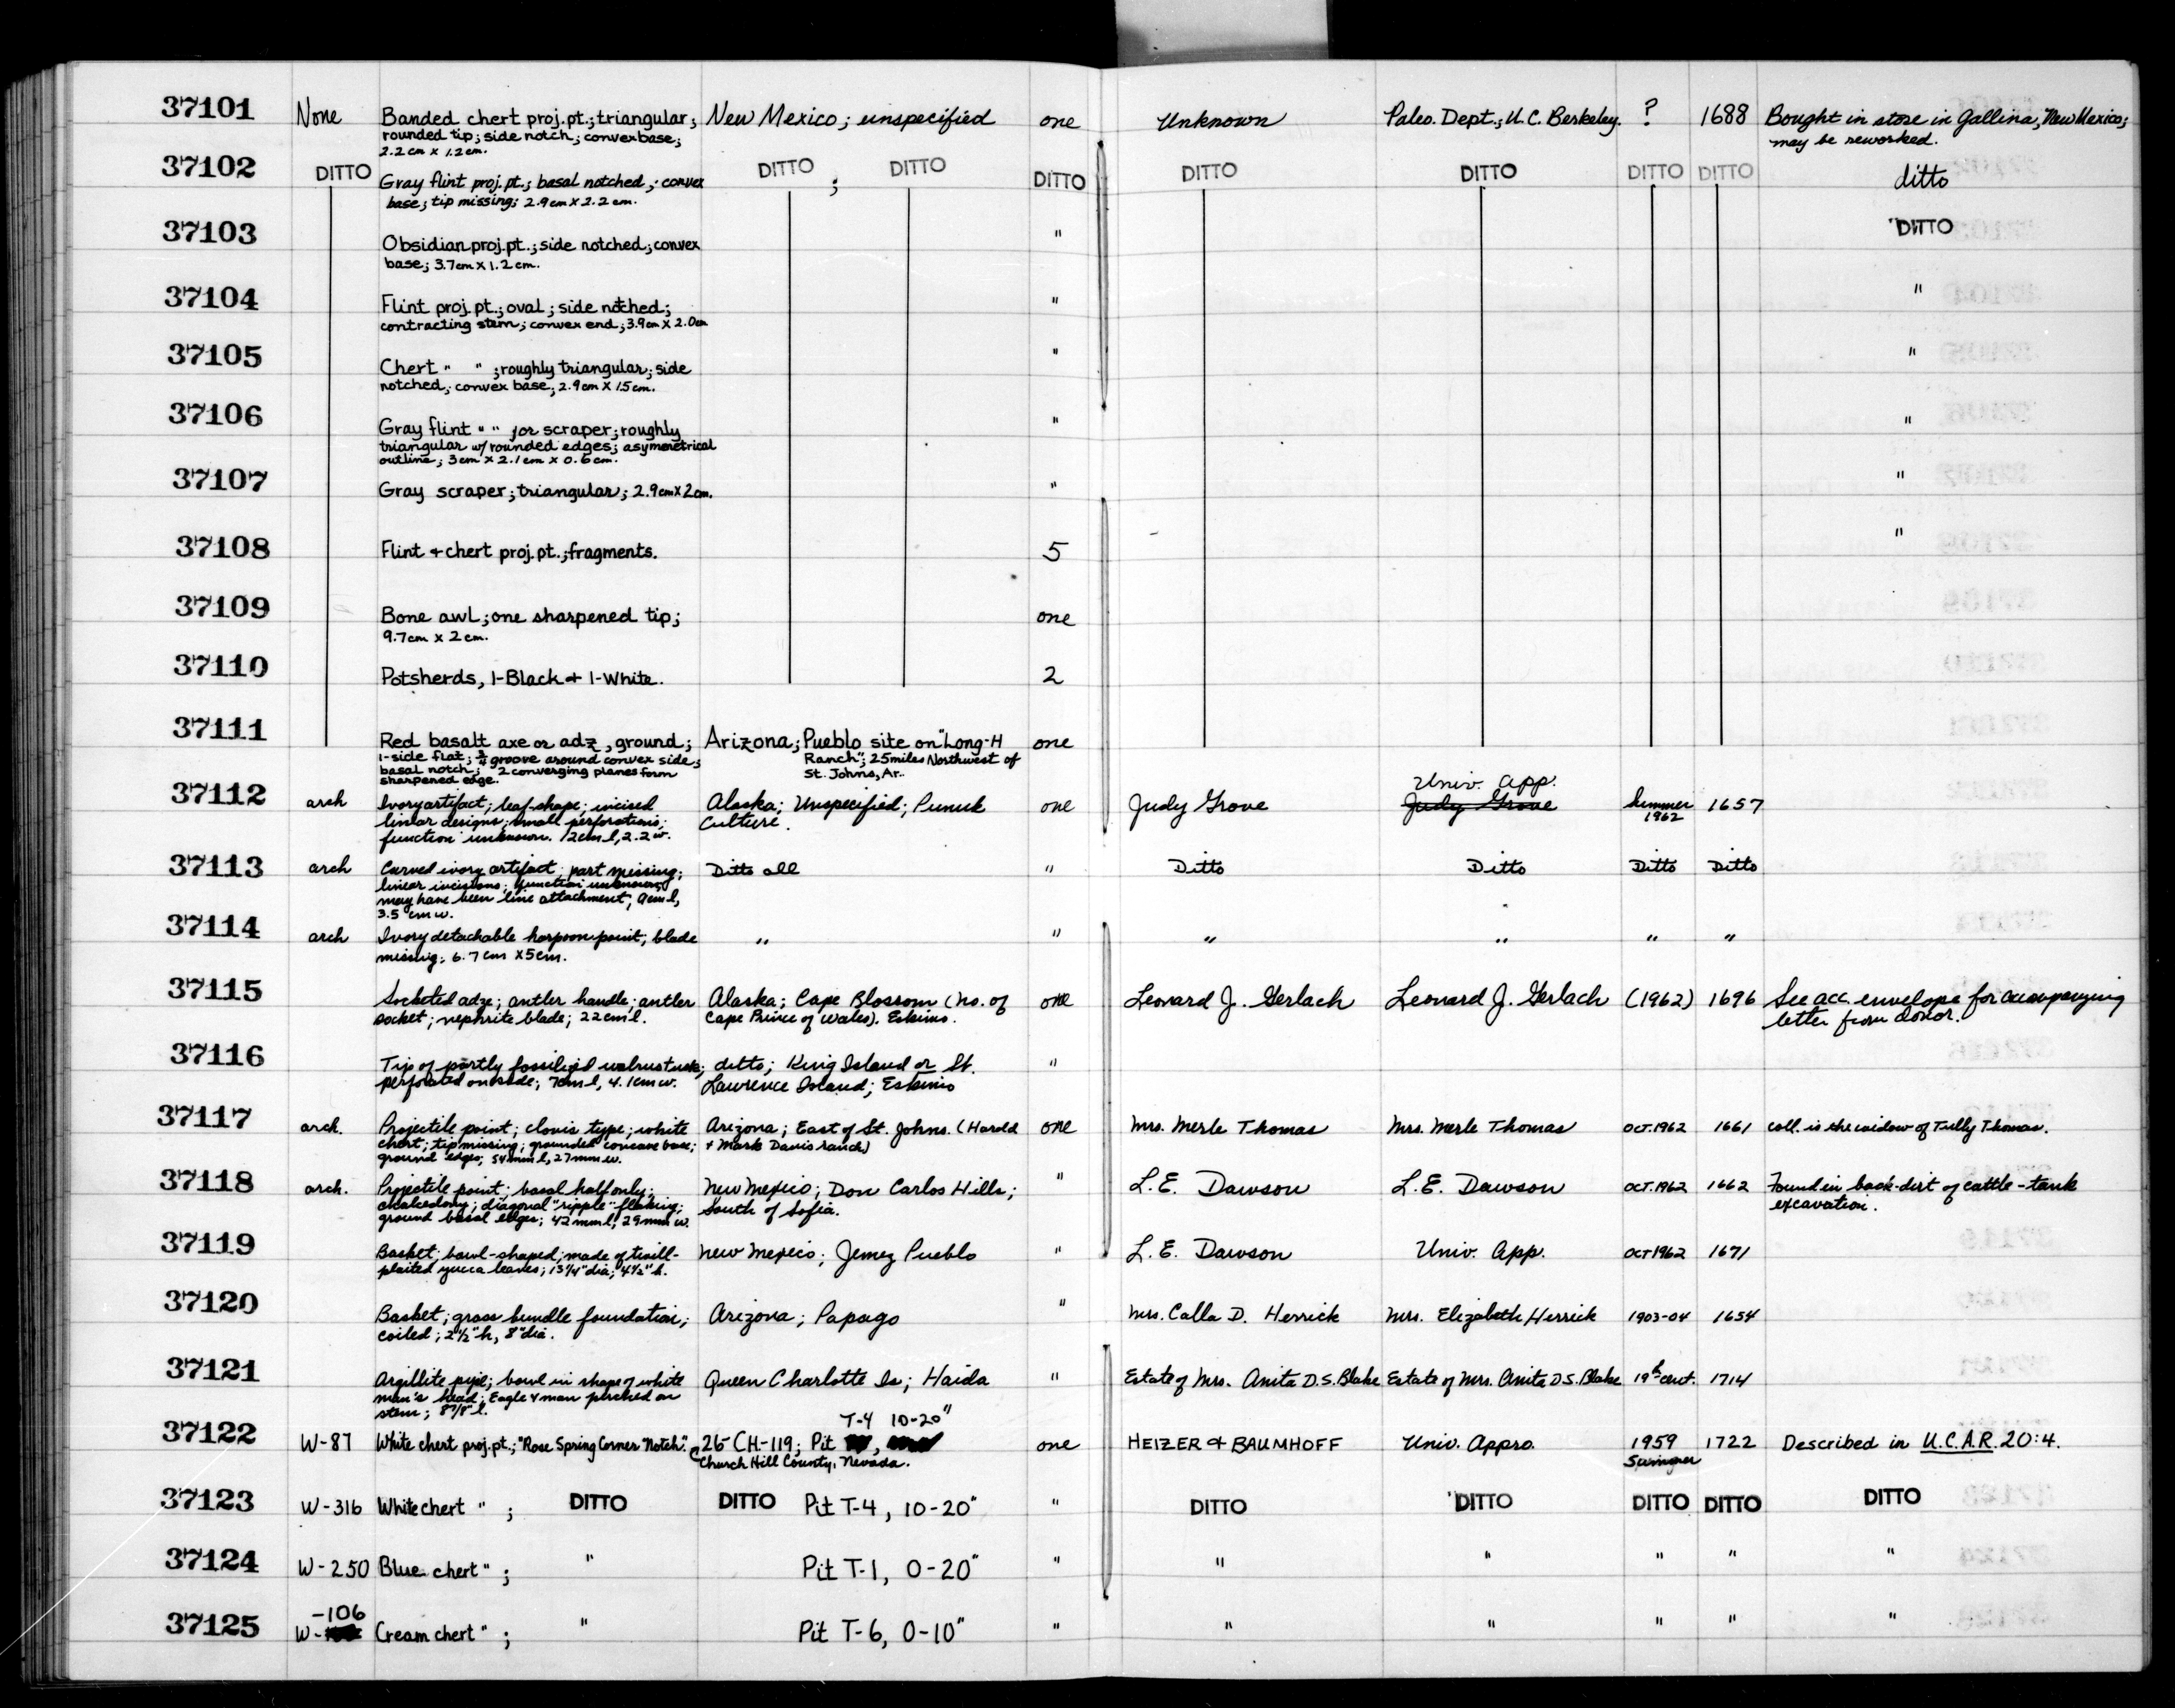 37101 None Banded chert proj. pt.; triangular; New Mexico; unspecified one Unknown Paleo. Dept.; U.C. Berkeley. ? 1688 Bought in store in Gallina, New Mexico;
rounded tip; side notch; convex base; may be reworked.
2.2 cm x 1.2 cm.
37102 DITTO Gray flint proj. pt.; basal notched; convex DITTO ; DITTO DITTO DITTO DITTO DITTO DITTO ditto
base; tip missing; 2.9 cm x 2.2 cm.
37103 Obsidian proj. pt.; side notched; convex " DITTO
base; 3.7 cm x 1.2 cm.
37104 Flint proj. pt.; oval; side notched; " "
contracting stem; convex end; 3.9 cm x 2.0 cm
37105 Chert " " ; roughly triangular; side " "
notched; convex base; 2.9 cm x 1.5 cm.
37106 Gray flint " " for scraper; roughly " "
triangular w/ rounded edges; asymmetrical
outline; 3 cm x 2.1 cm x 0.6 cm.
37107 Gray scraper; triangular; 2.9 cm x 2 cm. " "
37108 Flint + chert proj. pt.; fragments. 5 "
37109 Bone awl; one sharpened tip; one
9.7 cm x 2 cm.
37110 Potsherds, 1-Black + 1-White. 2
37111 Red basalt axe or adz, ground; Arizona; Pueblo site on "Long-H one
1-side flat; 3/4 groove around convex side; Ranch"; 25 miles Northwest of
basal notch; 2 converging planes form St. Johns, Ar.
sharpened edge.
Univ. App.
37112 arch Ivory artifact; leaf-shape; incised Alaska; Unspecified; Punuk one Judy Grove Judy Grove Summer 1657
linear designs; small perforations; Culture. 1962
function unknown. 12cm l, 2.2 w.
37113 arch Carved ivory artifact, part missing; Ditto all " Ditto Ditto Ditto Ditto
linear incisions; function unknown,
may have been line attachment; 9cm l,
3.5 cm w.
37114 arch Ivory detachable harpoon point; blade " " " " " "
missing; 6.7 cm x 5cm.
37115 Socketed adze; antler handle; antler Alaska; Cape Blossom (no. of one Leonard J. Gerlach Leonard J. Gerlach (1962) 1696 See acc. envelope for accompanying
socket; nephrite blade; 22 cm l. Cape Prince of Wales). Eskimo. letter from donor.
37116 Tip of partly fossilized walrus tusk; ditto; King Island or St. "
perforated one side; 7cm l, 4.1cm w. Lawrence Island; Eskimo
37117 arch. Projectile point; clovis type; white Arizona; East of St. Johns. (Harold one Mrs. Merle Thomas Mrs. Merle Thomas Oct. 1962 1661 coll. is the widow of Tully Thomas.
chert; tip missing; grounded concave base; + Mark Davis ranch)
ground edges; 54 mm l, 27 mm w.
37118 arch. Projectile point; basal half only; New Mexico; Don Carlos Hills; " L.E. Dawson L.E. Dawson Oct. 1962 1662 Found in back-dirt of cattle-tank
chalcedony; diagonal "ripple" flaking; South of Sofia. excavation.
ground basal edges; 42 mm l, 29 mm w.
37119 Basket; bowl-shaped; made of twill- New Mexico; Jemez Pueblo " L.E. Dawson Univ. App. Oct 1962 1671
plaited yucca leaves; 13 1/4" dia; 4 1/2" h.
37120 Basket; grass bundle foundation; Arizona; Papago " Mrs. Calla D. Herrick Mrs. Elizabeth Herrick 1903-04 1654
coiled; 2 1/2" h, 8" dia.
37121 Argillite pipe; bowl in shape of white Queen Charlotte Is; Haida " Estate of Mrs. Anita D.S. Blake Estate of Mrs. Anita D.S. Blake 19th cent. 1714
man's head; Eagle & man perched on
stem; 8 7/8" l.
T-4 10-20"
37122 W-87 White chert proj. pt.; "Rose Spring Corner Notch". 26 CH-119; Pit , one HEIZER & BAUMHOFF Univ. Appro. 1959 1722 Described in U.C.A.R. 20:4.
Church Hill County, Nevada. Summer
37123 W-316 White chert " ; DITTO DITTO Pit T-4, 10-20" " DITTO DITTO DITTO DITTO DITTO
37124 W-250 Blue chert " ; " Pit T-1, 0-20" " " " " " "
-106
37125 W- Cream chert " ; " Pit T-6, 0-10" " " " " " "